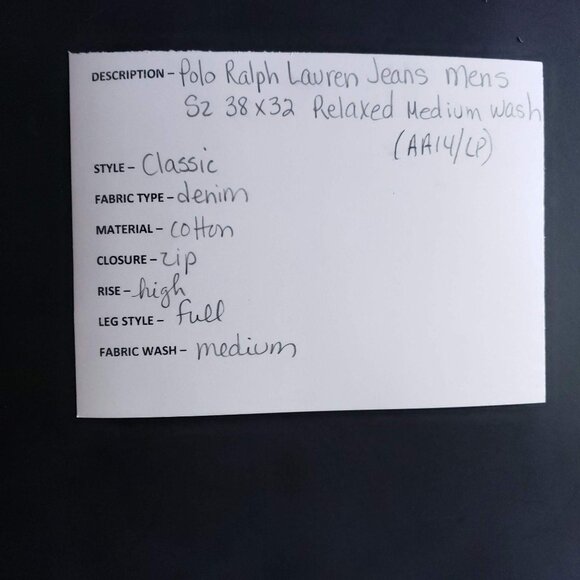 DESCRIPTION - Polo Ralph Lauren Jeans Mens
Sz 38x32 Relaxed Medium Wash
(AA14/LP)
STYLE - Classic
FABRIC TYPE - denim
MATERIAL - cotton
CLOSURE - zip
RISE - high
LEG STYLE - full
FABRIC WASH - medium